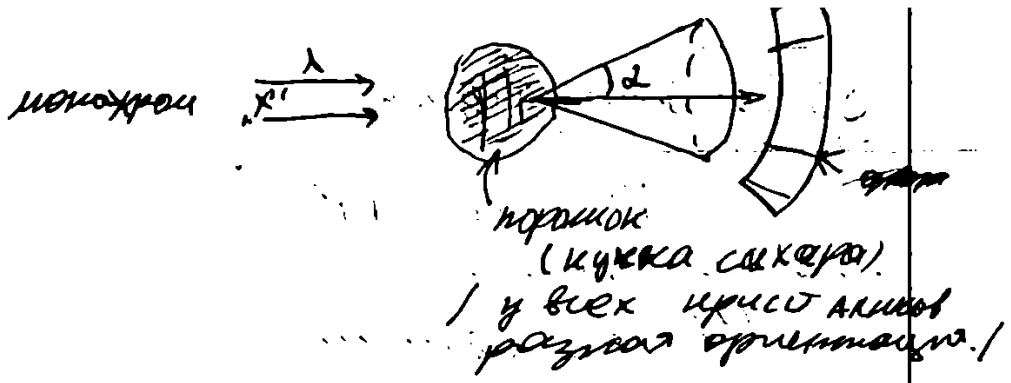 λ
монохром
α
порошок
(кучка сахара)
/ у всех кристаликов
разная ориентация. /